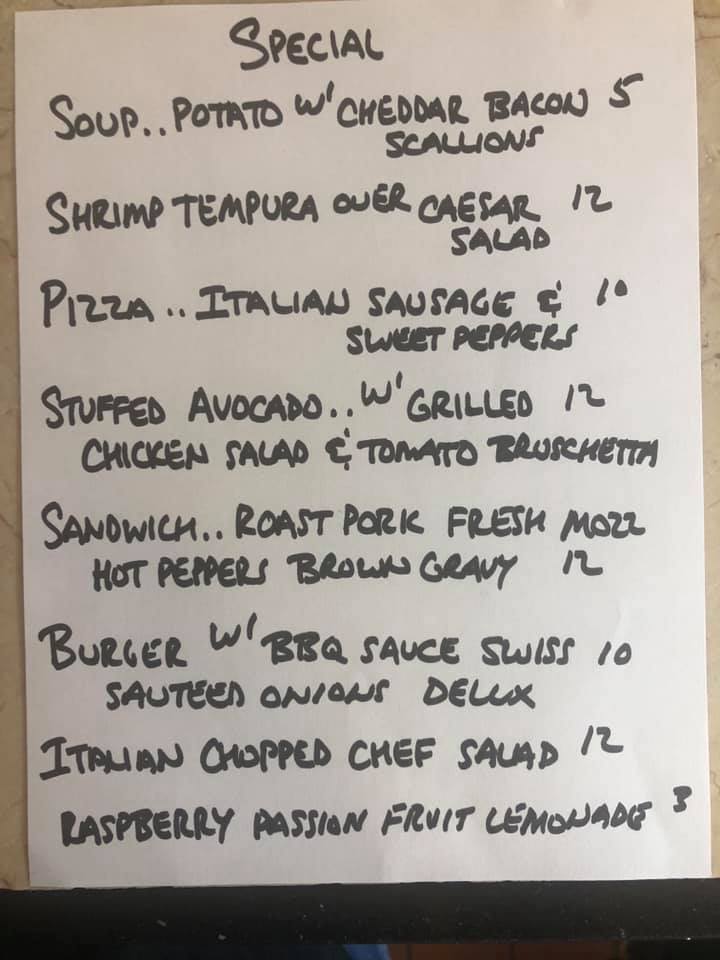 SPECIAL
SOUP.. POTATO W/ CHEDDAR BACON 5
SCALLIONS
SHRIMP TEMPURA OVER CAESAR 12
SALAD
PIZZA.. ITALIAN SAUSAGE & 10
SWEET PEPPERS
STUFFED AVOCADO.. W/ GRILLED 12
CHICKEN SALAD & TOMATO BRUSCHETTA
SANDWICH.. ROAST PORK FRESH MOZZ
HOT PEPPERS BROWN GRAVY 12
BURGER W/ BBQ SAUCE SWISS 10
SAUTEED ONIONS DELUX
ITALIAN CHOPPED CHEF SALAD 12
RASPBERRY PASSION FRUIT LEMONADE 3